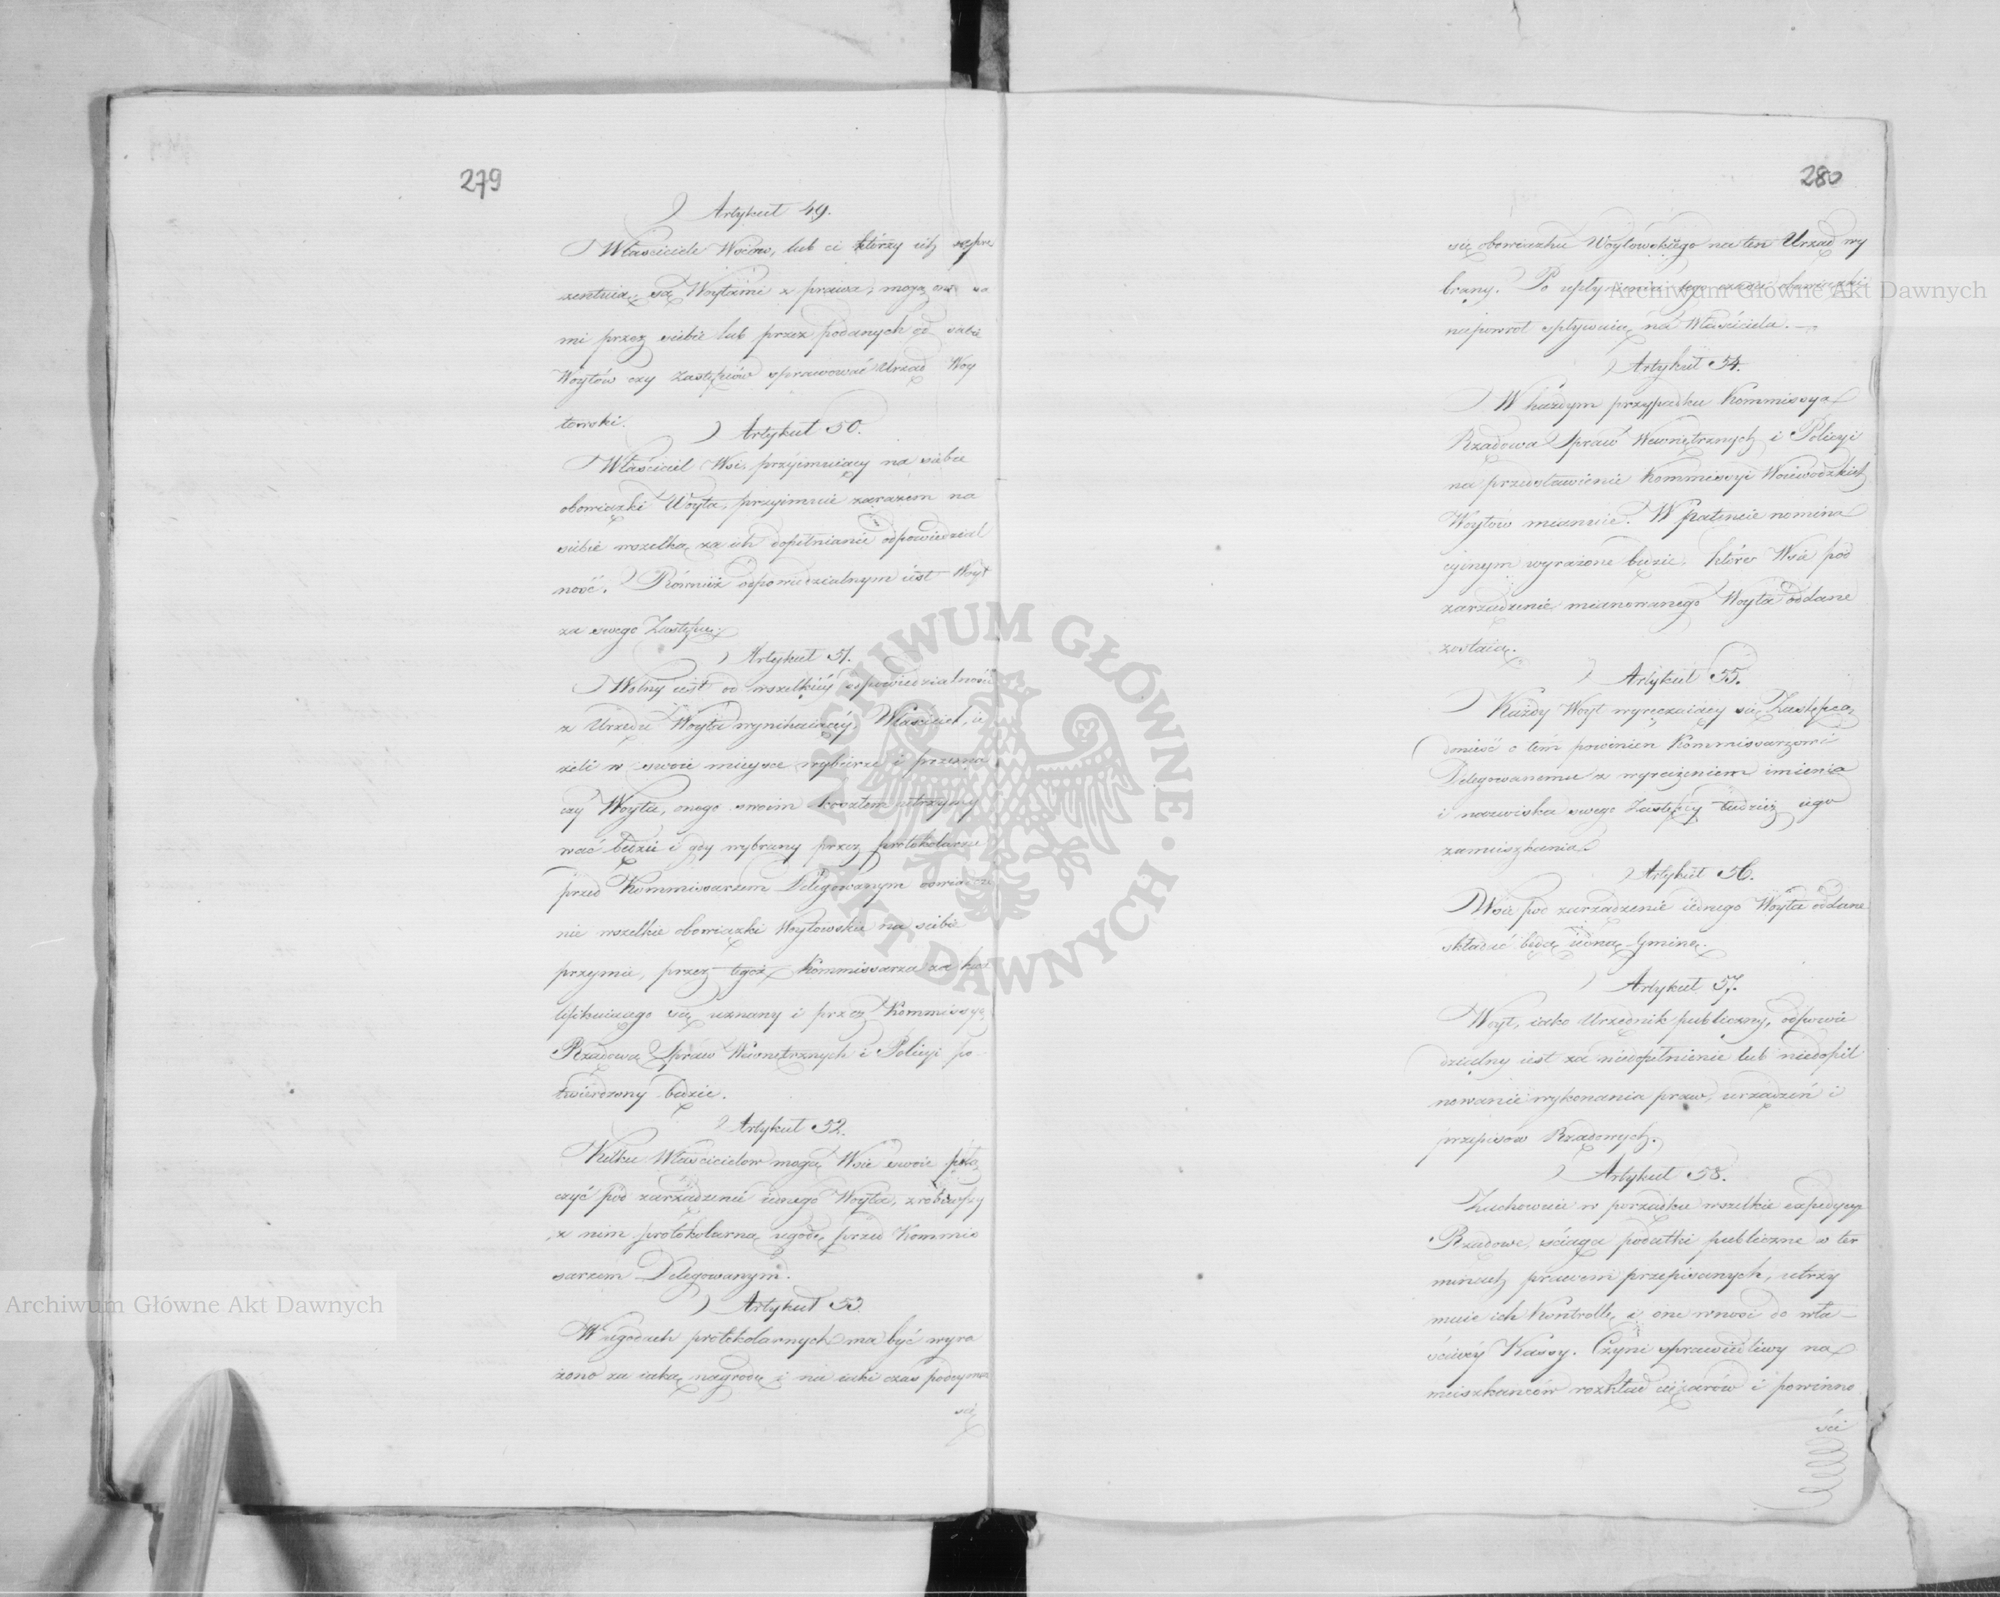 279
Artykuł 49.
Właściciele Wsiów, lub ci którzy ich repre
zentuią, są Woytami z prawa, mogą oni sa
mi przez siebie lub przez podanych od siebie
Woytów czy Zastępców sprawować Urząd Woy
towski.
Artykuł 50.
Właściciel Wsi, przyimuiący na siebie
obowiązki Woyta, przyimuie zarazem na
siebie wszelką za ich dopełnianie odpowiedzial
ność. Również odpowiedzialnym iest Woyt
za swego Zastępcę.
Artykuł 51.
Wolny iest od wszelkiéy odpowiedzialności
z Urzędu Woyta wynikaiącéy Właściciel, ie
żeli w swoie mieysce wybierze i przezna
czy Woyta, onego swoim kosztem utrzymy
wać będzie i gdy wybrany przez protokolarne
przed Kommissarzem Delegowanym oświadcze
nie wszelkie obowiązki Woytowskie na siebie
przymie, przez tegoż Kommissarza za kwa
lifikuiącego się uznany i przez Kommissyą
Rządową Spraw Wewnętrznych i Policyi po
twierdzony będzie.
Artykuł 52.
Kilku Właścicielow mogą Wsie swoie połą
czyć pod zarządzenie iednego Woyta, zrobiwszy
z nim protokolarną ugodę przed Kommis
sarzem Delegowanym.
Artykuł 53.
W ugodach protokolarnych ma być wyra
żono za iaką nagrodę i na iaki czas podeymuie
się
280
się obowiązku Woytowskiego na ten Urząd wy
brany. Po upłynieniu tego czasu obowiązki
napowrót spływaią na Właściciela.
Artykuł 54.
W każdym przypadku Kommissya
Rządowa Spraw Wewnętrznych i Policyi
na przedstawienie Kommissyi Woiewódzkich
Woytów mianuie. W patencie nomina
cyinym wyrażone będzie, które Wsie pod
zarządzenie mianowanego Woyta oddane
zostaią.
Artykuł 55.
Każdy Woyt wyręczaiący się Zastępcą,
donieść o tém powinien Kommissarzowi
Delegowanemu z wyrażeniem imienia
i nazwiska swego Zastępcy tudzież iego
zamieszkania.
Artykuł 56.
Wsie pod zarządzenie iednego Woyta oddane
składać będą iedną Gminę.
Artykuł 57.
Woyt, iako Urzędnik publiczny, odpowie
dzialny iest za niedopełnienie lub niedopil
nowanie wykonania praw, urządzeń i
przepisów Rządowych.
Artykuł 58.
Zachowuie w porządku wszelkie expedycye
Rządowe, ściąga podatki publiczne w ter
minach prawem przepisanych, utrzy
muie ich Kontrollę, i one wnosi do wła
ściwéy Kassy. Czyni sprawiedliwy na
mieszkańców rozkład ciężarów i powinno
ści
Archiwum Główne Akt Dawnych
Archiwum Główne Akt Dawnych
ARCHIWUM GŁÓWNE AKT DAWNYCH